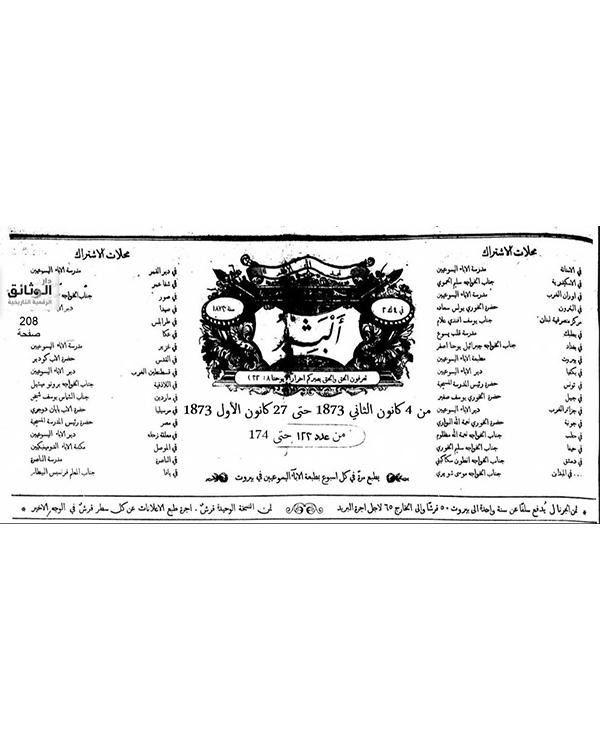 محلات الاشتراك
في الاستانة مدرسة الاباء اليسوعيين
في الاسكندرية جناب الخواجه سليم الحموي
في اوران الغرب مدرسة الاباء اليسوعيين
في البترون حضرة الخوري بولس سعاده
مركز متصرفية لبنان جناب يوسف افندي علام
في بعلبك مدرسة قلب يسوع
في بغداد جناب الخواجه جبرائيل يوحنا اصفر
في بيروت مطبعة الاباء اليسوعيين
في بكفيا دير الاباء اليسوعيين
في تونس حضرة رئيس المدرسة المسيحية
في جبيل حضرة الخوري يوسف صفير
في جزائر الغرب دير الاباء اليسوعيين
في جونية حضرة الخوري نعمة الله
في حلب جناب الخواجه نعمة الله مظلوم
في حيفا حضرة الخوري سليم
في دمشق جناب الخواجه انطون سكاكيني
جناب الخواجه موسى
في ٤ ك ٢
سنة ١٨٧٣
البشير
تعرفون الحق والحق يصيركم احرارًا ( يوحنا ٨ : ٣٢ )
من 4 كانون الثاني 1873 حتى 27 كانون الأول 1873
من عدد ١٢٣ حتى 174
يطبع مرة في كل اسبوع بمطبعة الاباء اليسوعيين في بيروت
محلات الاشتراك
في دير القمر مدرسة الاباء اليسوعيين
في شفا عمر
في صور جناب الخواجه
في صيدا دير
في طرابلس
في عكا
في غزير مدرسة الاباء اليسوعيين
في القدس حضرة الاب كودير
في قسطنطين الغرب دير الاباء اليسوعيين
في اللاذقية جناب الخواجه برونو ميشيل
في ماردين جناب الشماس يوسف
في مرسيليا حضرة الاب يابان دوجي
في مصر حضرة رئيس المدرسة المسيحية
في معلقة زحله دير الاباء اليسوعيين
في الموصل مكتبة الاباء الدومينيكيين
في الناصرة مدرسة الناصرة
في يافا جناب المعلم فرنسيس البيطار
دار
الوثائق
الرقمية التاريخية
208
صفحة
ثمن الجرنال يُدفع سلفًا عن سنة واحدة الى بيروت ٥٠ قرشًا والى الخارج ٦٥ لاجل اجرة البريد
ثمن النسخة الوحيدة قرش . اجرة طبع الاعلانات عن كل سطر قرش في الوجه الاخير